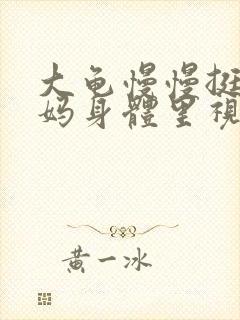 大龟慢慢挺
妈身體里視
黄一冰